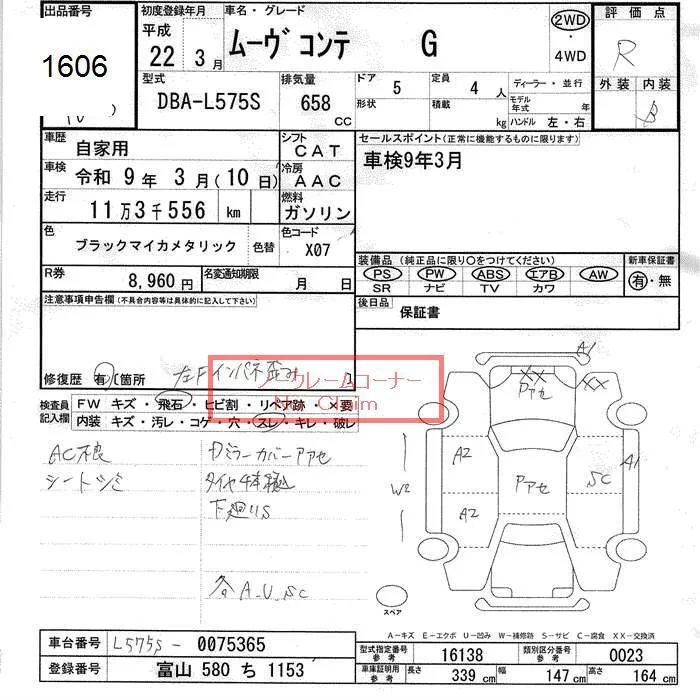 出品番号
1606
初度登録年月
平成
22 3 月
車名・グレード
ムーヴ コンテ G
2WD
4WD
評価点
R
外装 内装
B
型式
DBA-L575S
排気量
658 CC
ドア 5
形状
定員 4 人
積載 kg
ディーラー・並行
モデル年式 年
ハンドル 左・右
車歴
自家用
シフト
CAT
車検
令和 9 年 3 月 ( 10 日)
冷房
AAC
走行
11 万 3 千 556 km
燃料
ガソリン
色
ブラックマイカメタリック 色替
色コード
X07
セールスポイント(正常に機能するものに限ります)
車検9年3月
装備品 (純正品に限り○をつけてください)
PS PW ABS エアB AW
SR ナビ TV カワ
新車保証書
有・無
R券 8,960 円
名変通知期限 月 日
後日品 保証書
注意事項申告欄 (不具合内容等は具体的に記入して下さい)
修復歴 有 箇所 左Fインパネ歪み
ノークレームコーナー
No Claim
検査員記入欄
FW キズ・飛石・ヒビ割・リペア跡・×要
内装 キズ・汚レ・コゲ・穴・スレ・キレ・破レ
AC不良
シートシミ
Dミラーカバーアアセ
下廻りS
各A.U.SC
A1
XX
XX
Pアセ
A2
W2
Pアセ
SC
A1
A2
スペア
A-キズ E-エクボ U-凹み W-補修跡 S-サビ C-腐食 XX-交換済
車台番号 L575S- 0075365
登録番号 富山 580 ち 1153
型式指定番号 参考 16138
類別区分番号 参考 0023
車庫証明用 参考 長さ 339 cm 幅 147 cm 高さ 164 cm